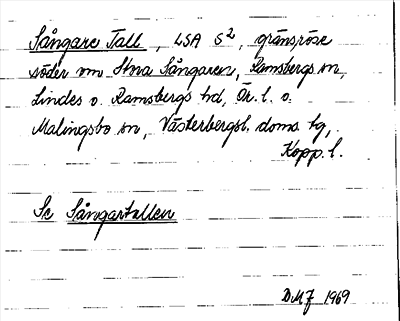 Sångare Tall, LSA S2, gränsröse
söder om Stora Sångaren, Ramsbergs sn,
Lindes o. Ramsbergs hd, Ör. l. o.
Malingsbo sn, Västerbergsl. doms. tg,
Kopp. l.
Se Sångartallen
DMJ 1969